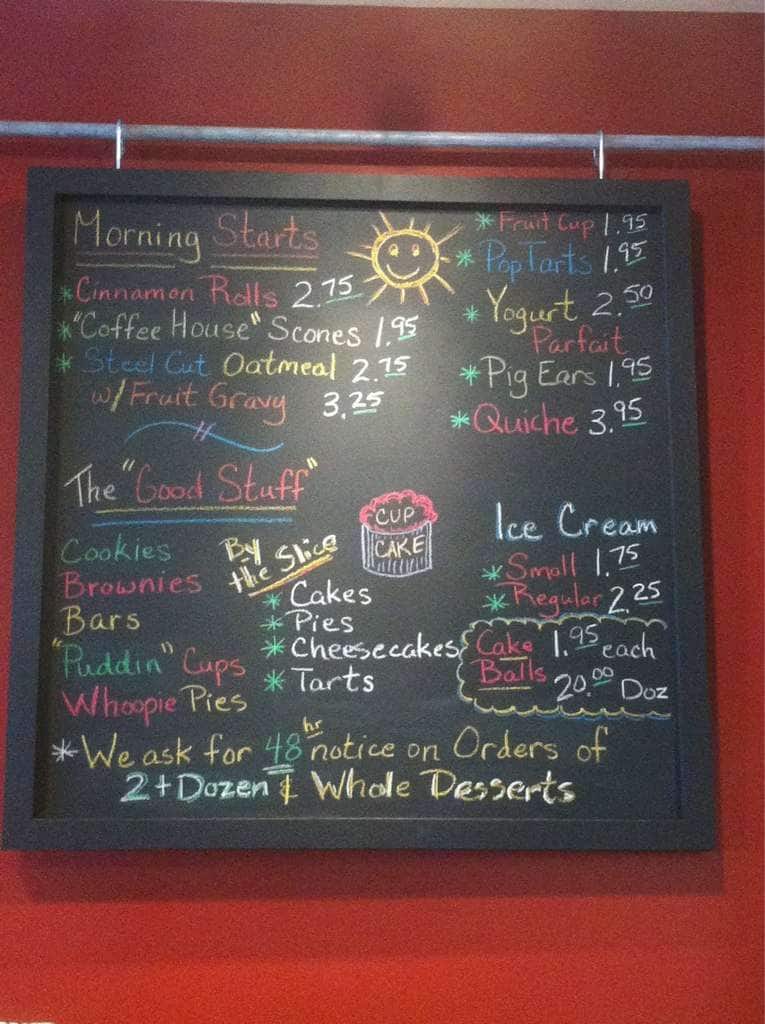 Morning Starts
* Cinnamon Rolls 2.75
* "Coffee House" Scones 1.95
* Steel Cut Oatmeal 2.75
w/Fruit Gravy 3.25
* Fruit Cup 1.95
* PopTarts 1.95
* Yogurt 2.50
Parfait
* Pig Ears 1.95
* Quiche 3.95
The "Good Stuff"
Cookies
Brownies
Bars
"Puddin" Cups
Whoopie Pies
By
the Slice
* Cakes
* Pies
* Cheesecakes
* Tarts
CUP
CAKE
Ice Cream
* Small 1.75
* Regular 2.25
Cake 1.95 each
Balls 20.00 Doz
* We ask for 48 hr notice on Orders of
2+ Dozen & Whole Desserts